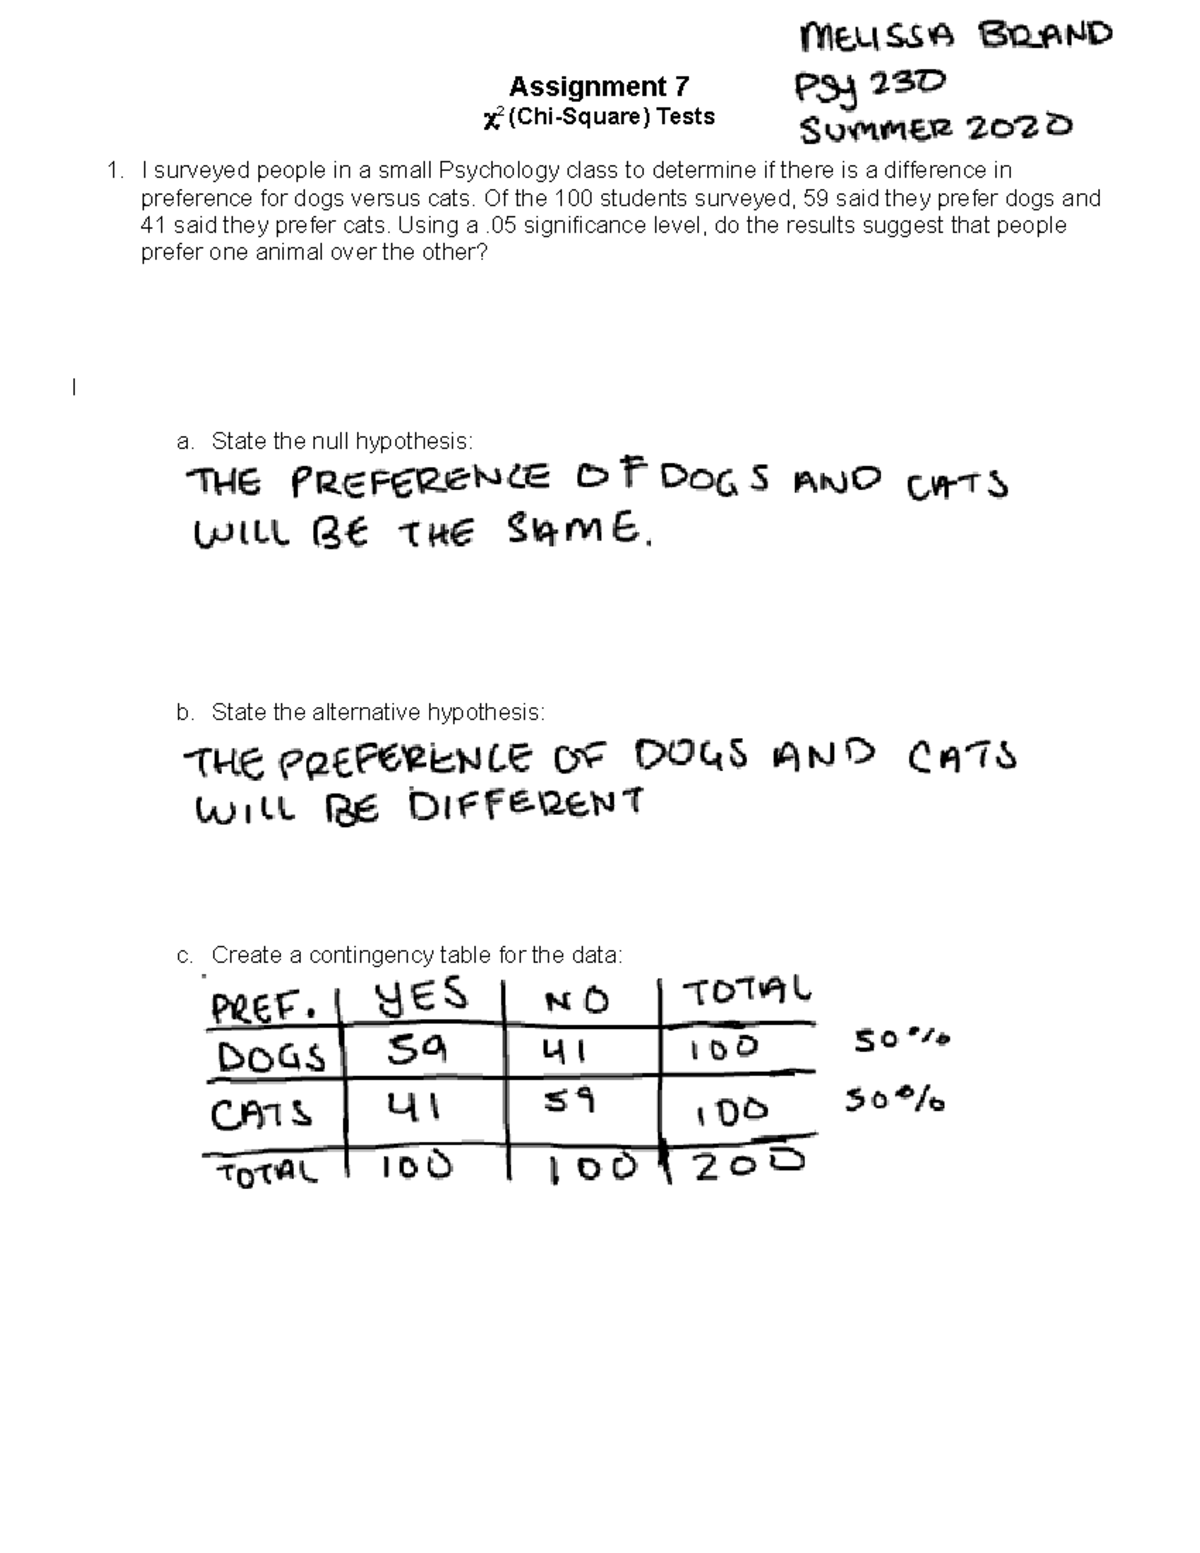 MELISSA BRAND
Assignment 7
PSY 230
χ² (Chi-Square) Tests
SUMMER 2020
1. I surveyed people in a small Psychology class to determine if there is a difference in
preference for dogs versus cats. Of the 100 students surveyed, 59 said they prefer dogs and
41 said they prefer cats. Using a .05 significance level, do the results suggest that people
prefer one animal over the other?
I
a. State the null hypothesis:
THE PREFERENCE OF DOGS AND CATS
WILL BE THE SAME.
b. State the alternative hypothesis:
THE PREFERENCE OF DOGS AND CATS
WILL BE DIFFERENT
c. Create a contingency table for the data:
PREF. YES NO TOTAL
DOGS 59 41 100 50%
CATS 41 59 100 50%
TOTAL 100 100 200